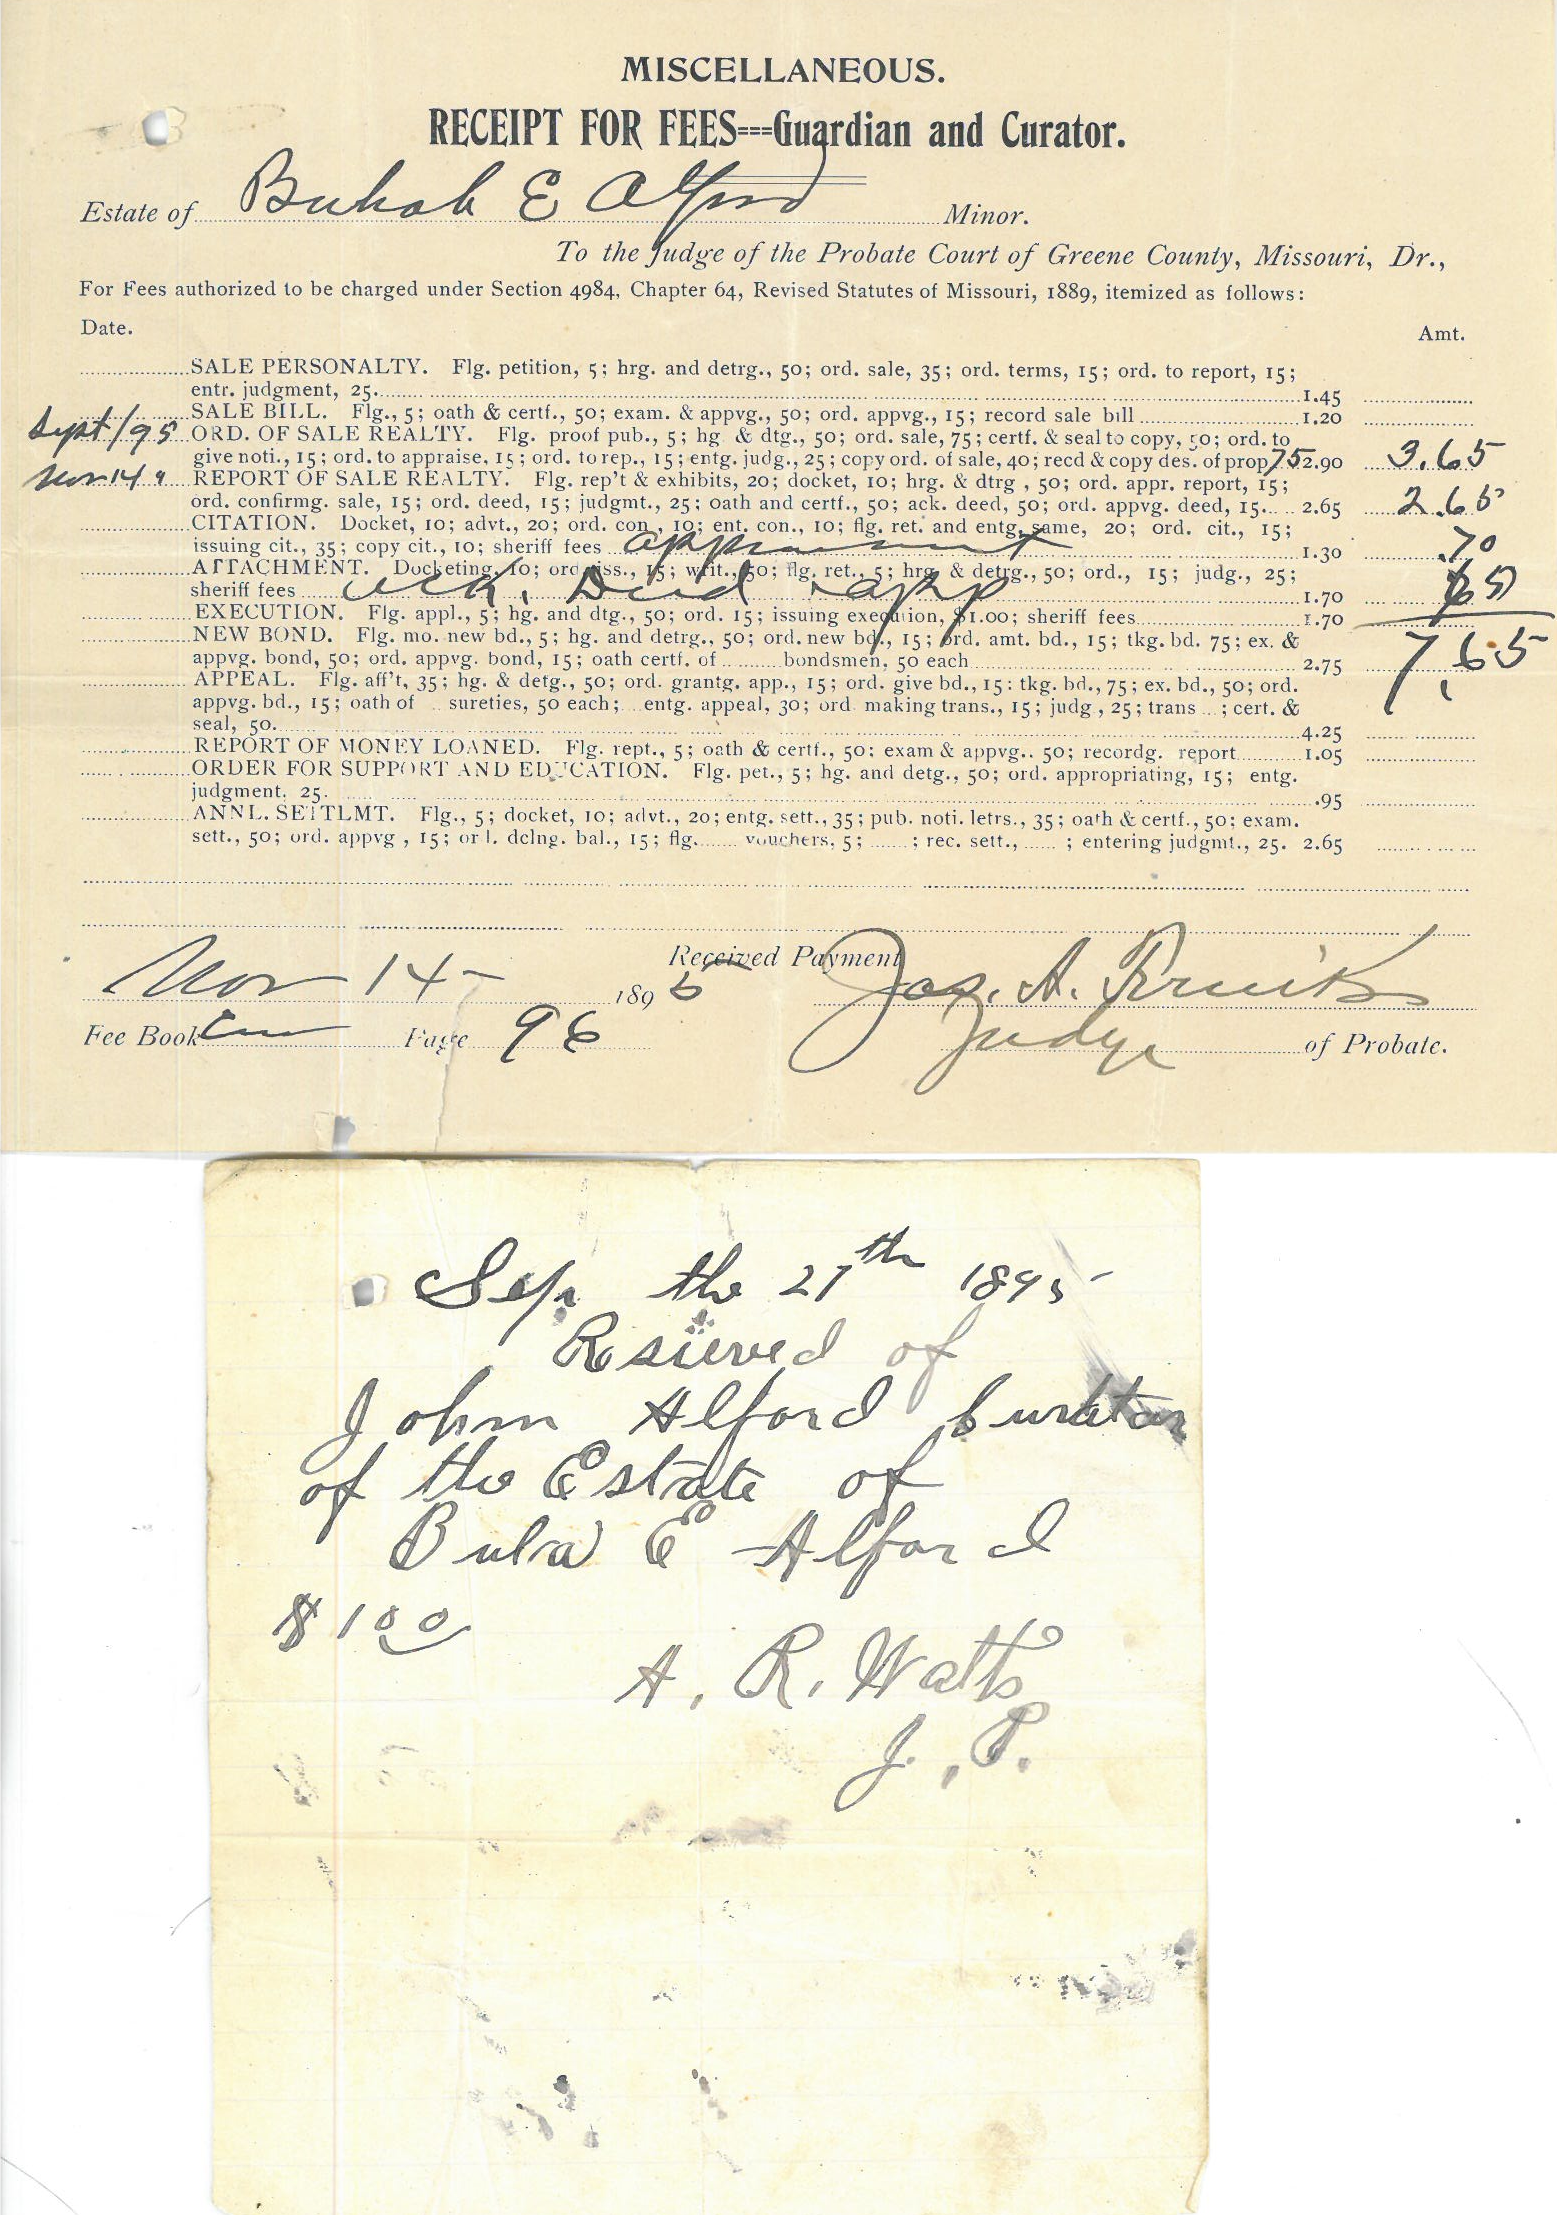 MISCELLANEOUS.
RECEIPT FOR FEES===Guardian and Curator.
Estate of Buhah E Alford Minor.
To the Judge of the Probate Court of Greene County, Missouri, Dr.,
For Fees authorized to be charged under Section 4984, Chapter 64, Revised Statutes of Missouri, 1889, itemized as follows:
Date. Amt.
SALE PERSONALTY. Flg. petition, 5; hrg. and detrg., 50; ord. sale, 35; ord. terms, 15; ord. to report, 15;
entr. judgment, 25. 1.45
SALE BILL. Flg., 5; oath & certf., 50; exam. & appvg., 50; ord. appvg., 15; record sale bill 1.20
Sept/95 ORD. OF SALE REALTY. Flg. proof pub., 5; hg & dtg., 50; ord. sale, 75; certf. & seal to copy, 50; ord. to
give noti., 15; ord. to appraise, 15; ord. to rep., 15; entg. judg., 25; copy ord. of sale, 40; recd & copy des. of prop 75 2.90 3.65
Nov 14 " REPORT OF SALE REALTY. Flg. rep't & exhibits, 20; docket, 10; hrg. & dtrg , 50; ord. appr. report, 15;
ord. confirmg. sale, 15; ord. deed, 15; judgmt., 25; oath and certf., 50; ack. deed, 50; ord. appvg. deed, 15. 2.65 2.65
CITATION. Docket, 10; advt., 20; ord. con , 10; ent. con., 10; flg. ret. and entg. same, 20; ord. cit., 15;
issuing cit., 35; copy cit., 10; sheriff fees 1.30 .70
ATTACHMENT. Docketing, 10; ord iss., 15; writ., 50; flg. ret., 5; hrg. & detrg., 50; ord., 15; judg., 25;
sheriff fees ack. Deed & app 1.70 65
EXECUTION. Flg. appl., 5; hg. and dtg., 50; ord. 15; issuing execution, $1.00; sheriff fees 1.70
NEW BOND. Flg. mo. new bd., 5; hg. and detrg., 50; ord. new bd., 15; ord. amt. bd., 15; tkg. bd. 75; ex. &
appvg. bond, 50; ord. appvg. bond, 15; oath certf. of bondsmen, 50 each 2.75 7.65
APPEAL. Flg. aff't, 35; hg. & detg., 50; ord. grantg. app., 15; ord. give bd., 15: tkg. bd., 75; ex. bd., 50; ord.
appvg. bd., 15; oath of sureties, 50 each; entg. appeal, 30; ord making trans., 15; judg , 25; trans ; cert. &
seal, 50. 4.25
REPORT OF MONEY LOANED. Flg. rept., 5; oath & certf., 50; exam & appvg.. 50; recordg. report 1.05
ORDER FOR SUPPORT AND EDUCATION. Flg. pet., 5; hg. and detg., 50; ord. appropriating, 15; entg.
judgment, 25. .95
ANNL. SETTLMT. Flg., 5; docket, 10; advt., 20; entg. sett., 35; pub. noti. letrs., 35; oath & certf., 50; exam.
sett., 50; ord. appvg , 15; ord. dclng. bal., 15; flg. vouchers, 5; ; rec. sett., ; entering judgmt., 25. 2.65
Received Payment
Nov 14- 1895 Jas. A.
Fee Book Page 96 Judge of Probate.
Sep the 27th 1895
Resieved of
John Alford Curator
of the Estate of
Bula E Alford
$ 1 00
A. R. Watts
J. P.